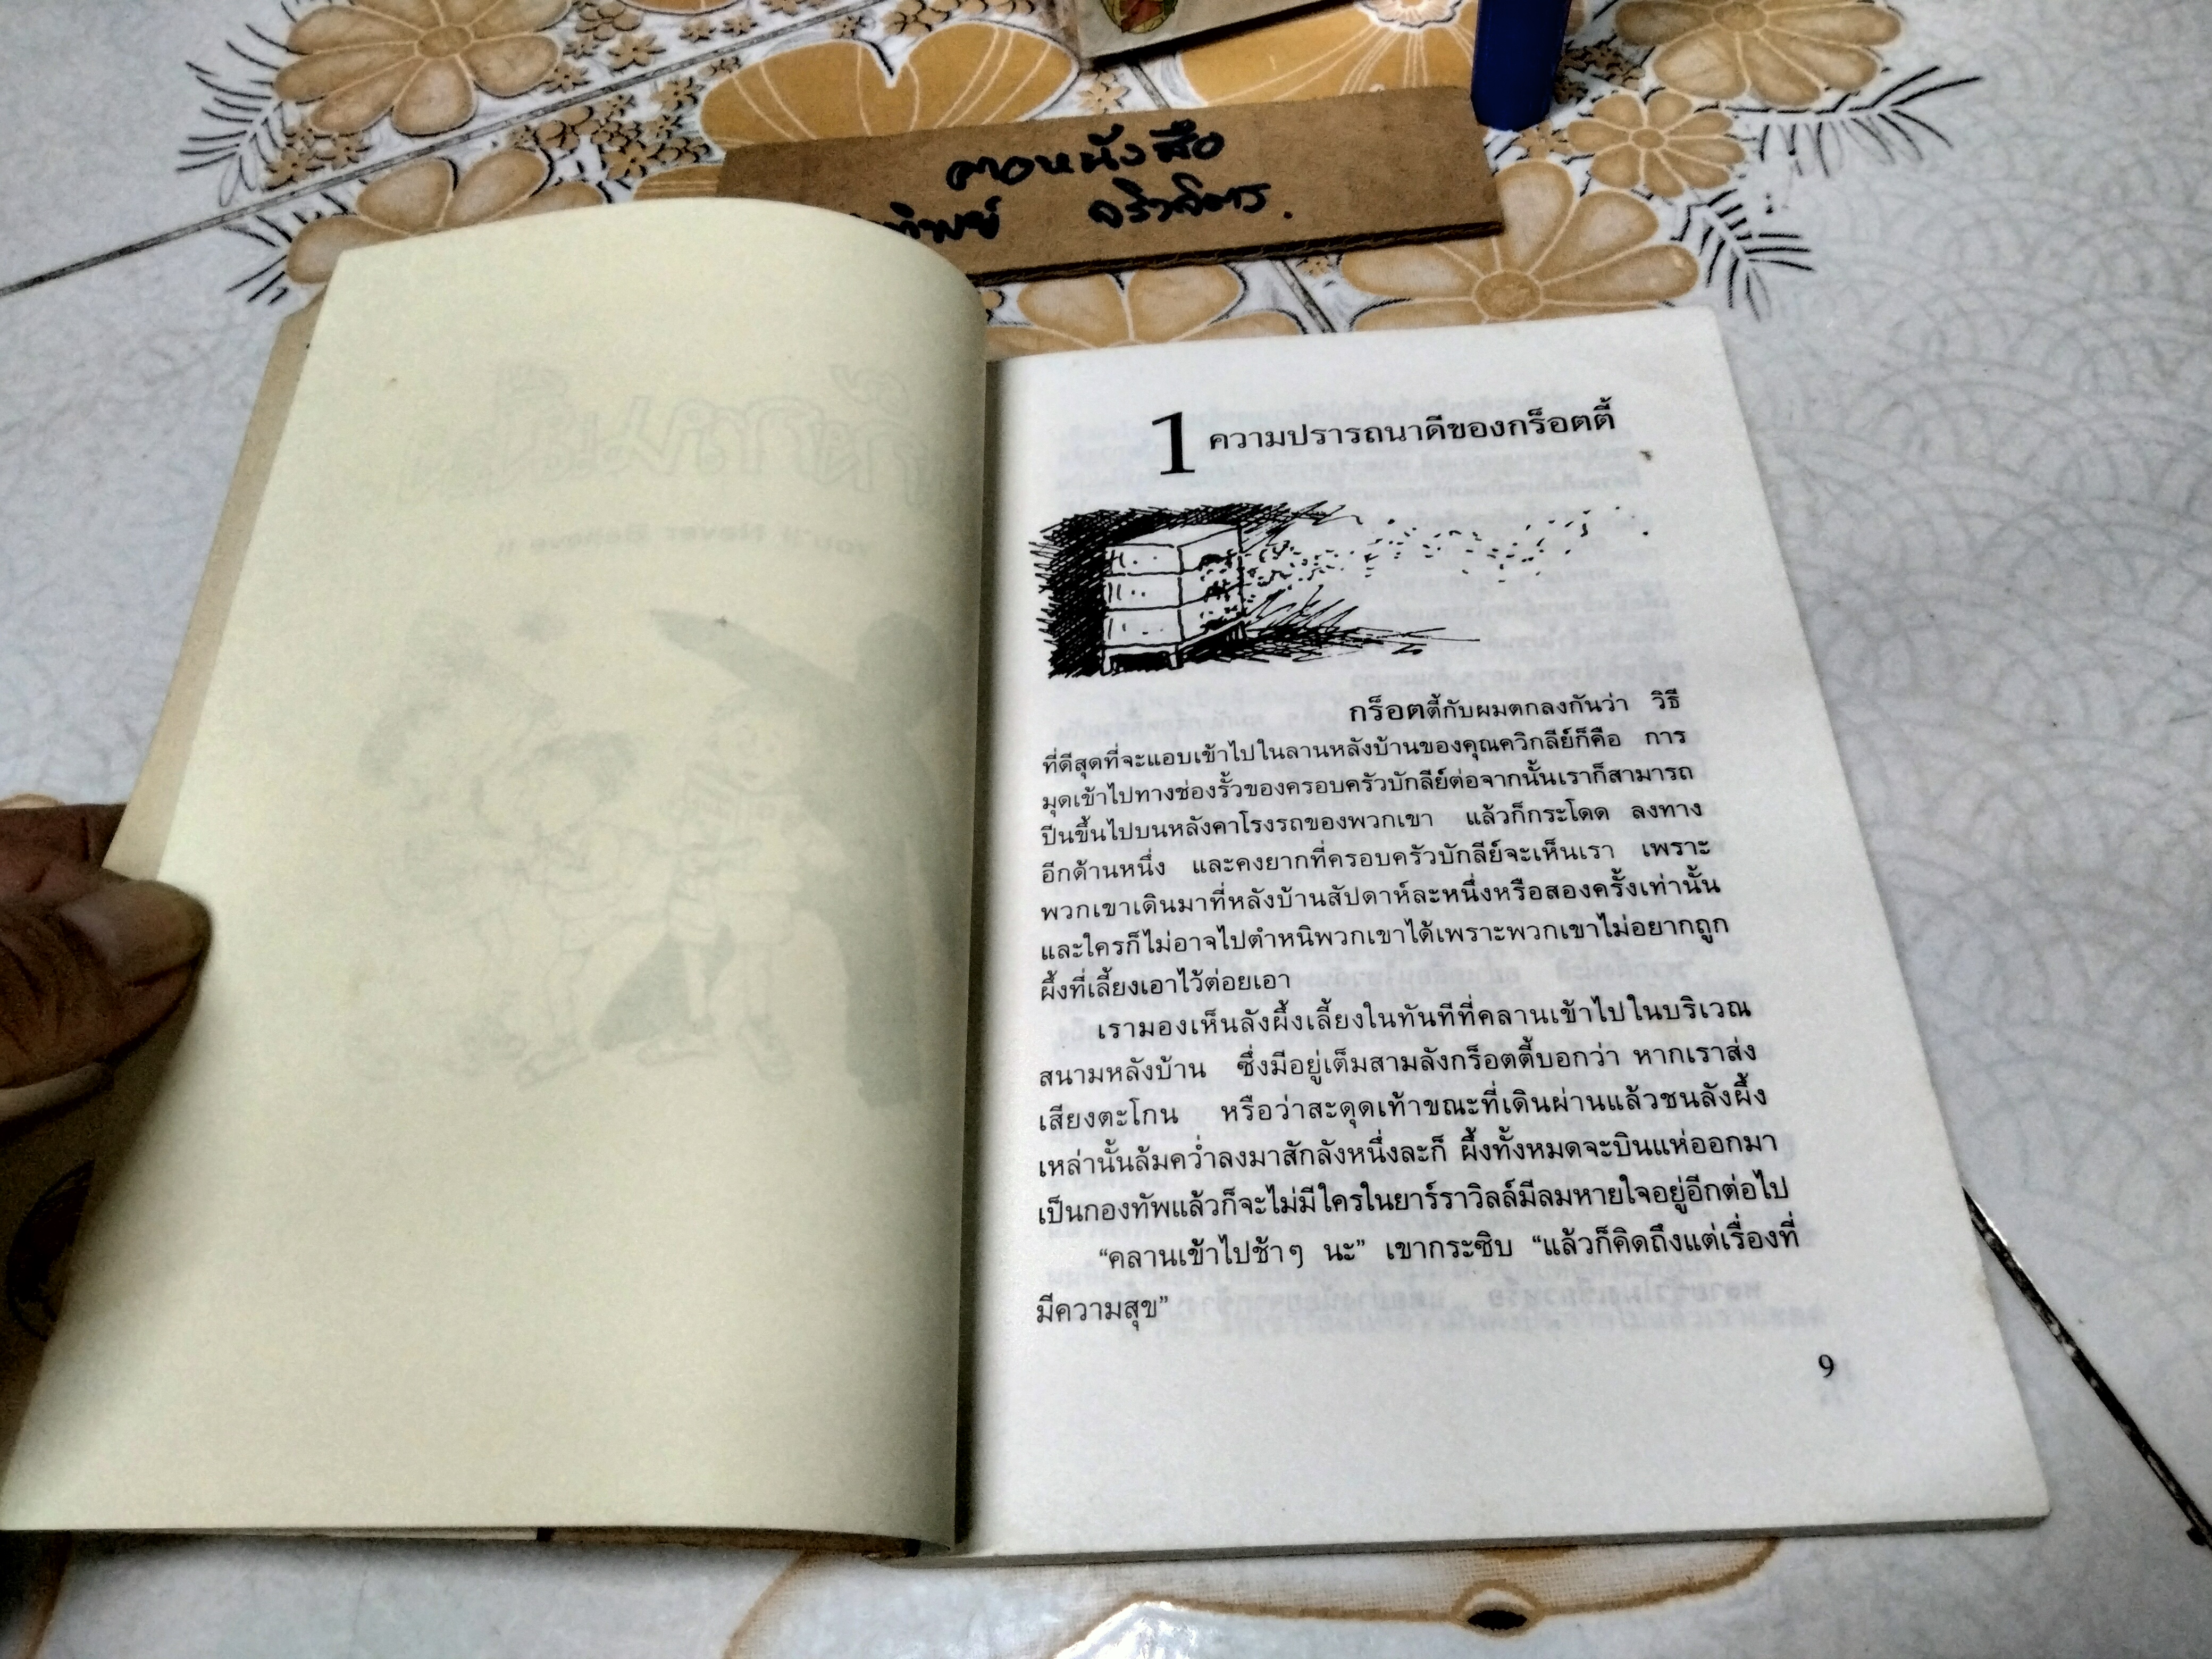 ตอหนังสือ
ทิพย์ จริวจิตร.
You'll Never Believe It
1 ความปรารถนาดีของกร็อตตี้
กร็อตตี้กับผมตกลงกันว่า วิธี
ที่ดีสุดที่จะแอบเข้าไปในลานหลังบ้านของคุณควิกลีย์ก็คือ การ
มุดเข้าไปทางช่องรั้วของครอบครัวบักลีย์ต่อจากนั้นเราก็สามารถ
ปีนขึ้นไปบนหลังคาโรงรถของพวกเขา แล้วก็กระโดด ลงทาง
อีกด้านหนึ่ง และคงยากที่ครอบครัวบักลีย์จะเห็นเรา เพราะ
พวกเขาเดินมาที่หลังบ้านสัปดาห์ละหนึ่งหรือสองครั้งเท่านั้น
และใครก็ไม่อาจไปตำหนิพวกเขาได้เพราะพวกเขาไม่อยากถูก
ผึ้งที่เลี้ยงเอาไว้ต่อยเอา
เรามองเห็นลังผึ้งเลี้ยงในทันทีที่คลานเข้าไปในบริเวณ
สนามหลังบ้าน ซึ่งมีอยู่เต็มสามลังกร็อตตี้บอกว่า หากเราส่ง
เสียงตะโกน หรือว่าสะดุดเท้าขณะที่เดินผ่านแล้วชนลังผึ้ง
เหล่านั้นล้มคว่ำลงมาสักลังหนึ่งละก็ ผึ้งทั้งหมดจะบินแห่ออกมา
เป็นกองทัพแล้วก็จะไม่มีใครในยาร์ราวิลล์มีลมหายใจอยู่อีกต่อไป
“คลานเข้าไปช้าๆ นะ” เขากระซิบ “แล้วก็คิดถึงแต่เรื่องที่
มีความสุข”
9